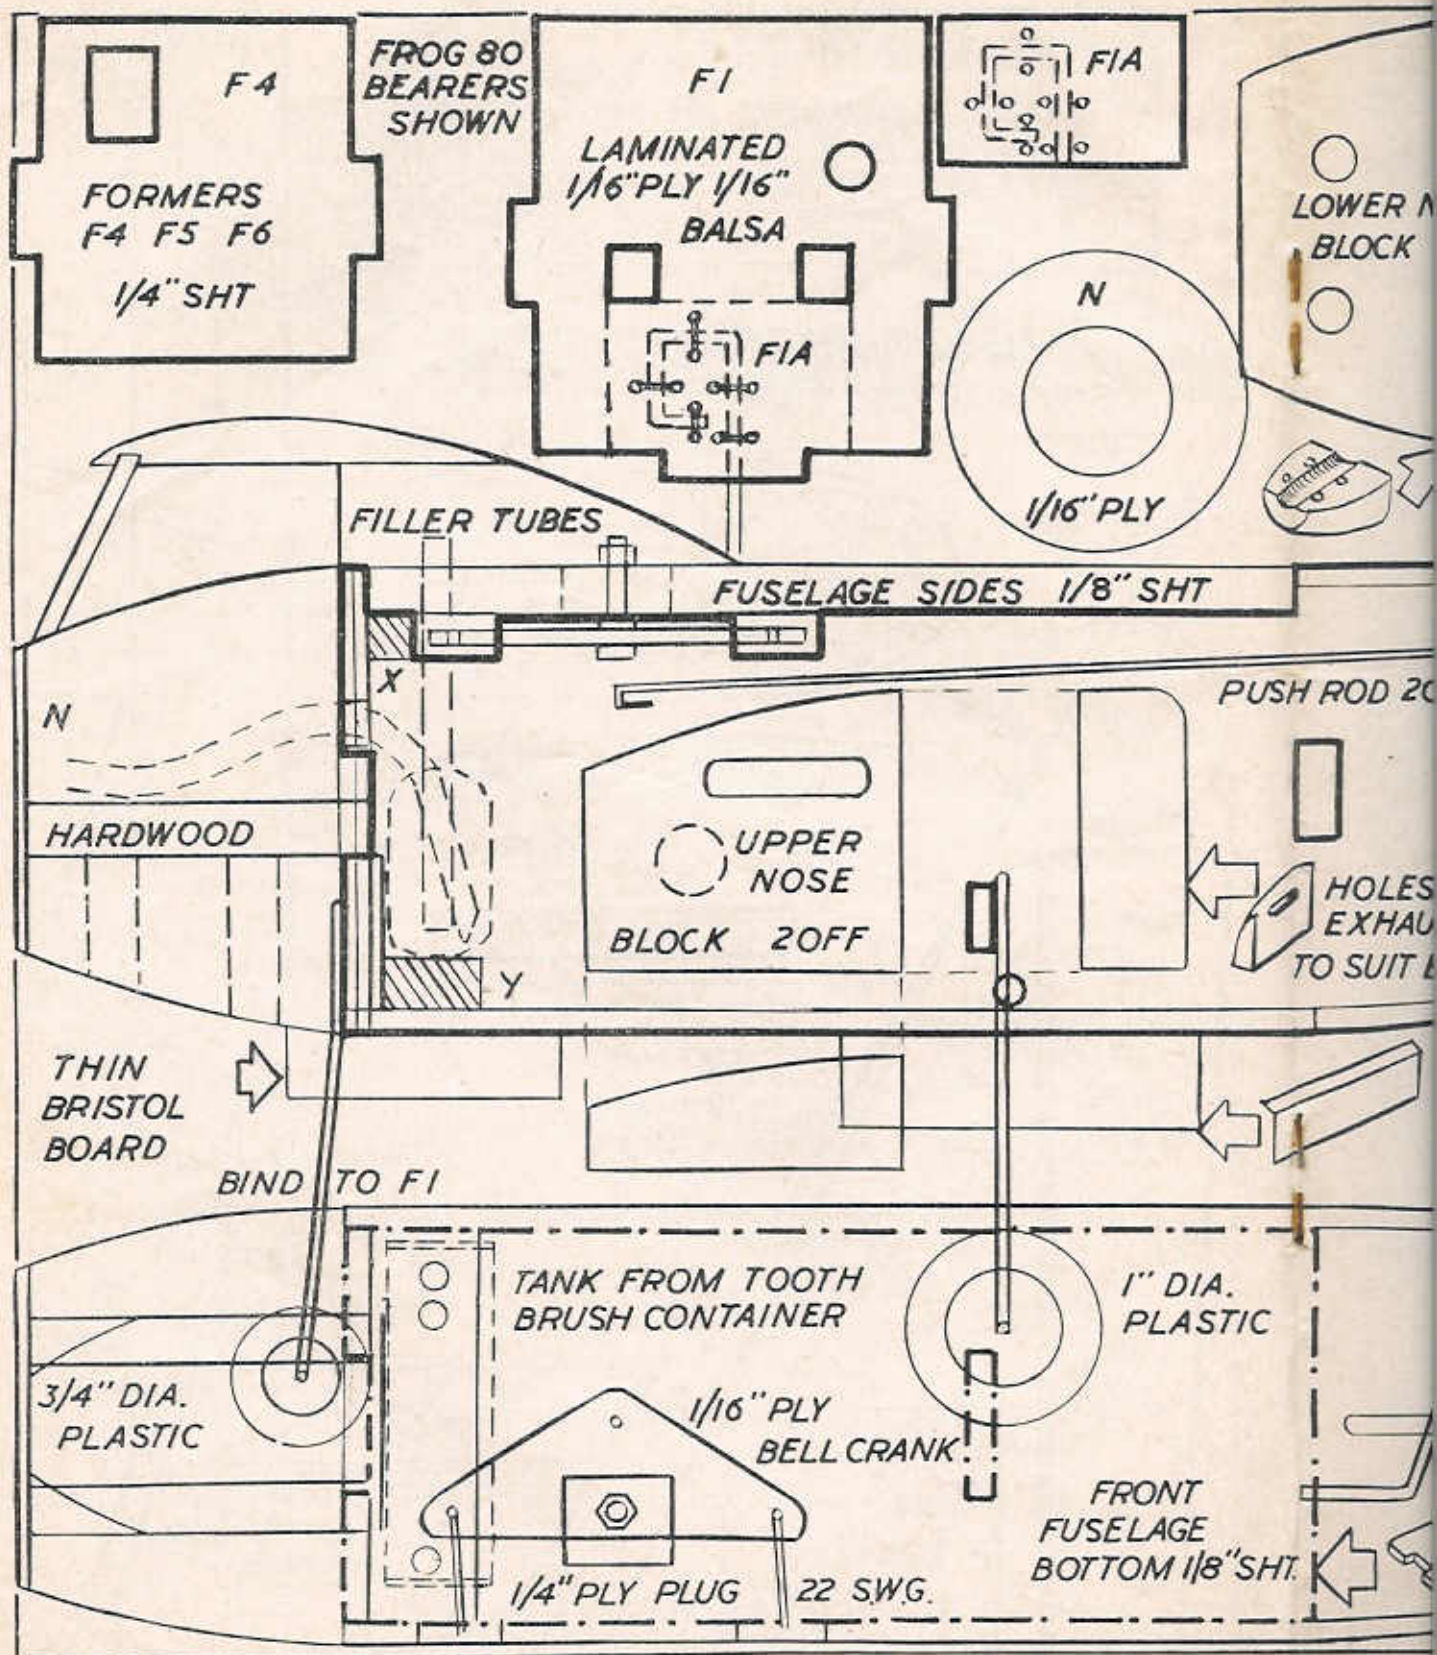 F4
FORMERS
F4 F5 F6
1/4" SHT
FROG 80
BEARERS
SHOWN
F1
LAMINATED
1/16" PLY 1/16"
BALSA
F1A
F1A
LOWER N
BLOCK
N
1/16" PLY
FILLER TUBES
FUSELAGE SIDES 1/8" SHT
X
N
PUSH ROD 20
HARDWOOD
UPPER
NOSE
BLOCK 2OFF
HOLES
EXHAU
TO SUIT
Y
THIN
BRISTOL
BOARD
BIND TO F1
TANK FROM TOOTH
BRUSH CONTAINER
1" DIA.
PLASTIC
3/4" DIA.
PLASTIC
1/16" PLY
BELL CRANK
FRONT
FUSELAGE
BOTTOM 1/8" SHT.
1/4" PLY PLUG
22 S.W.G.